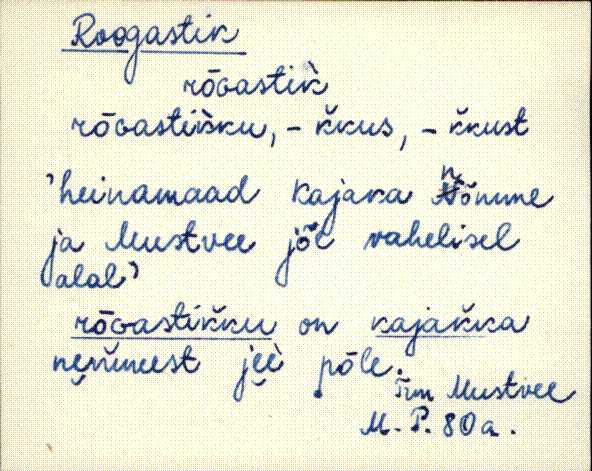 Roogastik
rōvastik̀
rōvastik̆ku, - k̆kus, - k̆kust
'heinamaad Kajaka Nõmme
ja Mustvee jõe vahelisel
alal'
rōvastik̆ku on kajak̆ka
jeè pōle.
Trm Mustvee
M. P. 80 a.